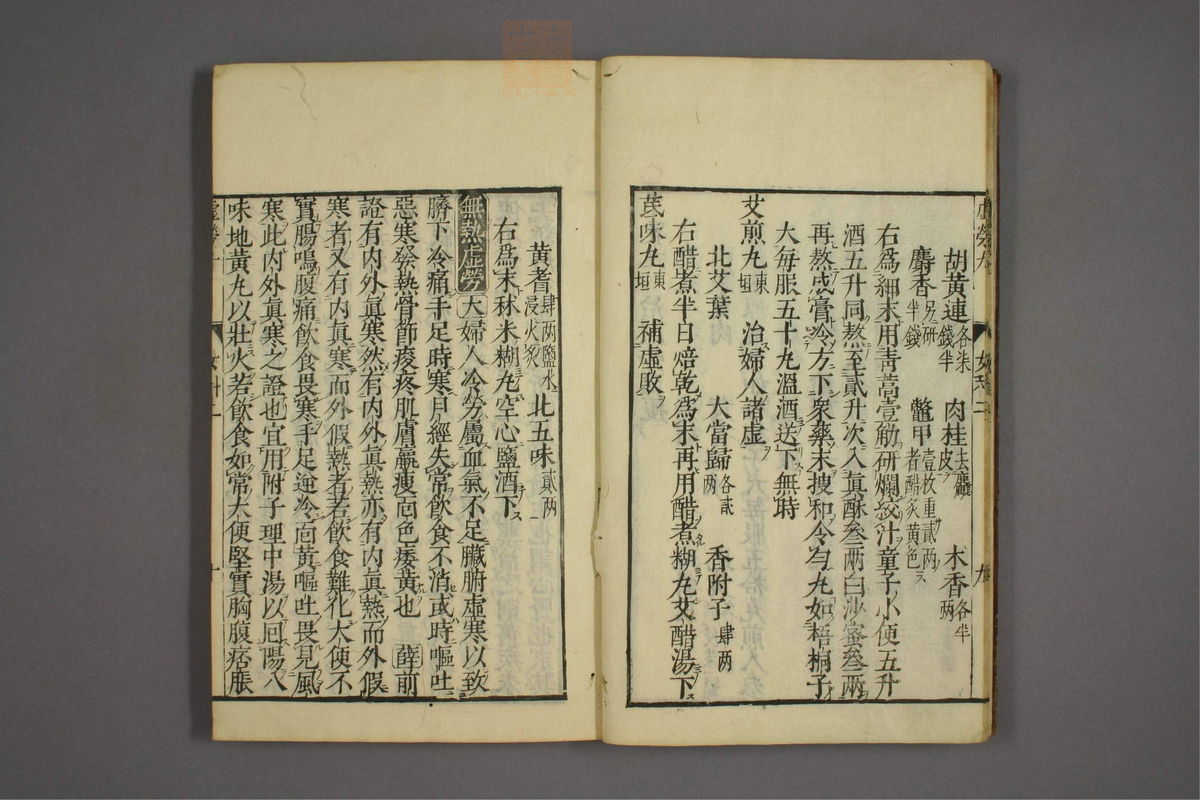 胡黄連各柒錢半　肉桂去麤皮　木香各半两
麝香另研半錢　鼈甲壹枚重貳两者醋炙黄色
右爲細末用青蒿壹觔研爛絞汁童子小便五升
酒五升同熬至貳升次入眞酥叁兩白沙蜜叁兩
再熬成膏冷方下衆藥末搜和令勻丸如梧桐子
大每服五十丸溫酒送下無時
艾煎丸東垣　治婦人諸虛
北艾葉　大當歸各貳两　香附子肆两
右醋煮半日焙乾爲末再用醋煮糊丸艾醋湯下
茋味丸東垣　補虛敗
黄耆肆两鹽水浸火炙　北五味貳两
右爲末秫米糊丸空心鹽酒下
無熱虛勞　大婦人冷勞屬血氣不足臟腑虛寒以致
臍下冷痛手足時寒月經失常飲食不消或時嘔吐
惡寒發熱骨節痠疼肌膚羸瘦靣色痿黄也　薛前
證有内外眞寒然有内外眞熱亦有内眞熱而外假
寒者又有内眞寒而外假熱者若飲食難化大便不
實腸鳴腹痛飲食畏寒手足逆冷靣黄嘔吐畏見風
寒此内外眞寒之證也宜用附子理中湯以回陽八
味地黄丸以壯火若飲食如常大便堅實胸腹痞脹